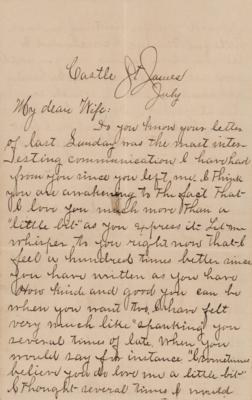 Castle St James
July
My dear Wife:
Do you know your letter
of last Sunday was the most inter-
esting communication I have had
from you since you left me. I think
you are awakening to the fact that
I love you much more than a
"little bit" as you express it. Let me
whisper to you right now that I
feel a hundred times better since
you have written as you have
How kind and good you can be
when you want to, I have felt
very much like "spanking" you
several times of late when you
would say for instance "I sometimes
believe you do love me a little bit"
I thought several times I would